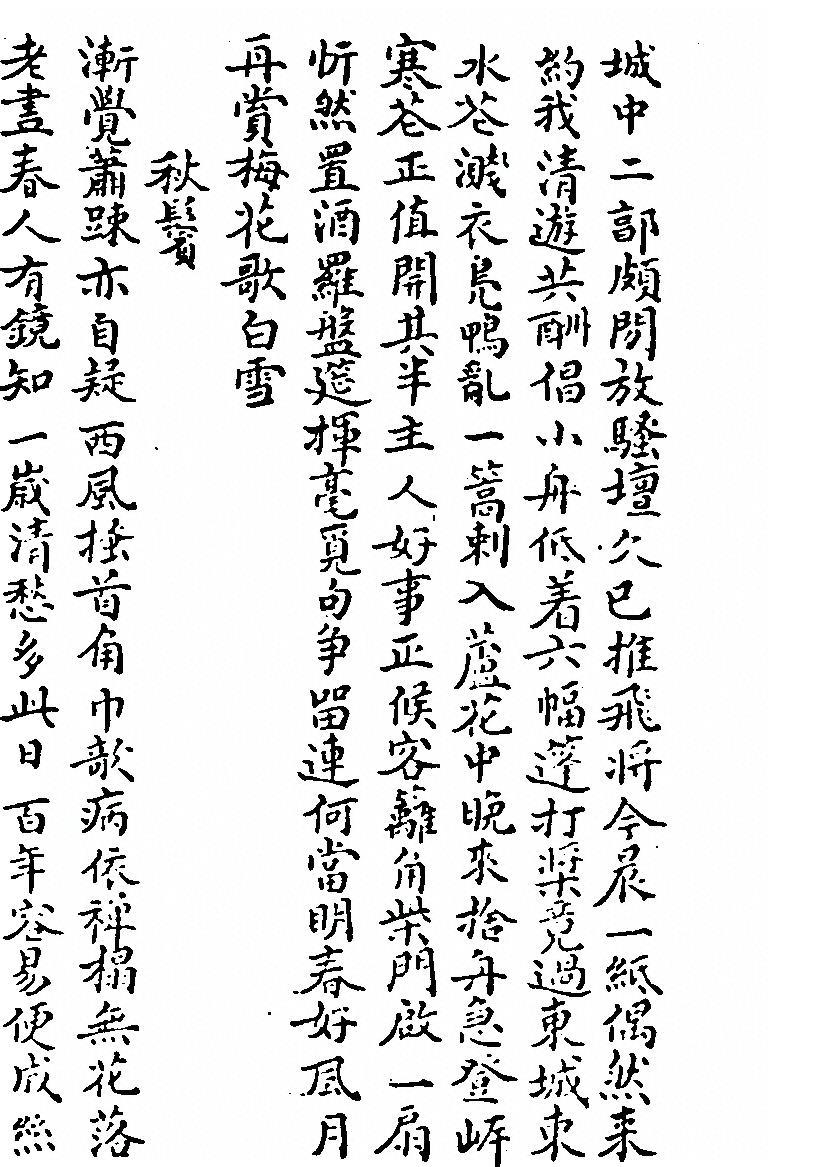 城中二部頗閒放騷壇久已推飛將今晨一紙偶然来
約我清遊共酬倡小舟低着六幅篷打槳竟過東城東
水花濺衣鳧鴨亂一篙刺入蘆花中晚來捨舟急登岸
寒花正值開其半主人好事正候客籬角柴門啟一扇
忻然置酒羅盤筵揮毫覓句争留連何當明春好風月
再賞梅花歌白雪
秋鬢
漸覺蕭踈亦自疑西風搔首角巾欹病依禪榻無花落
老晝春人有鏡知一嵗清愁多此日百年容易便成絲